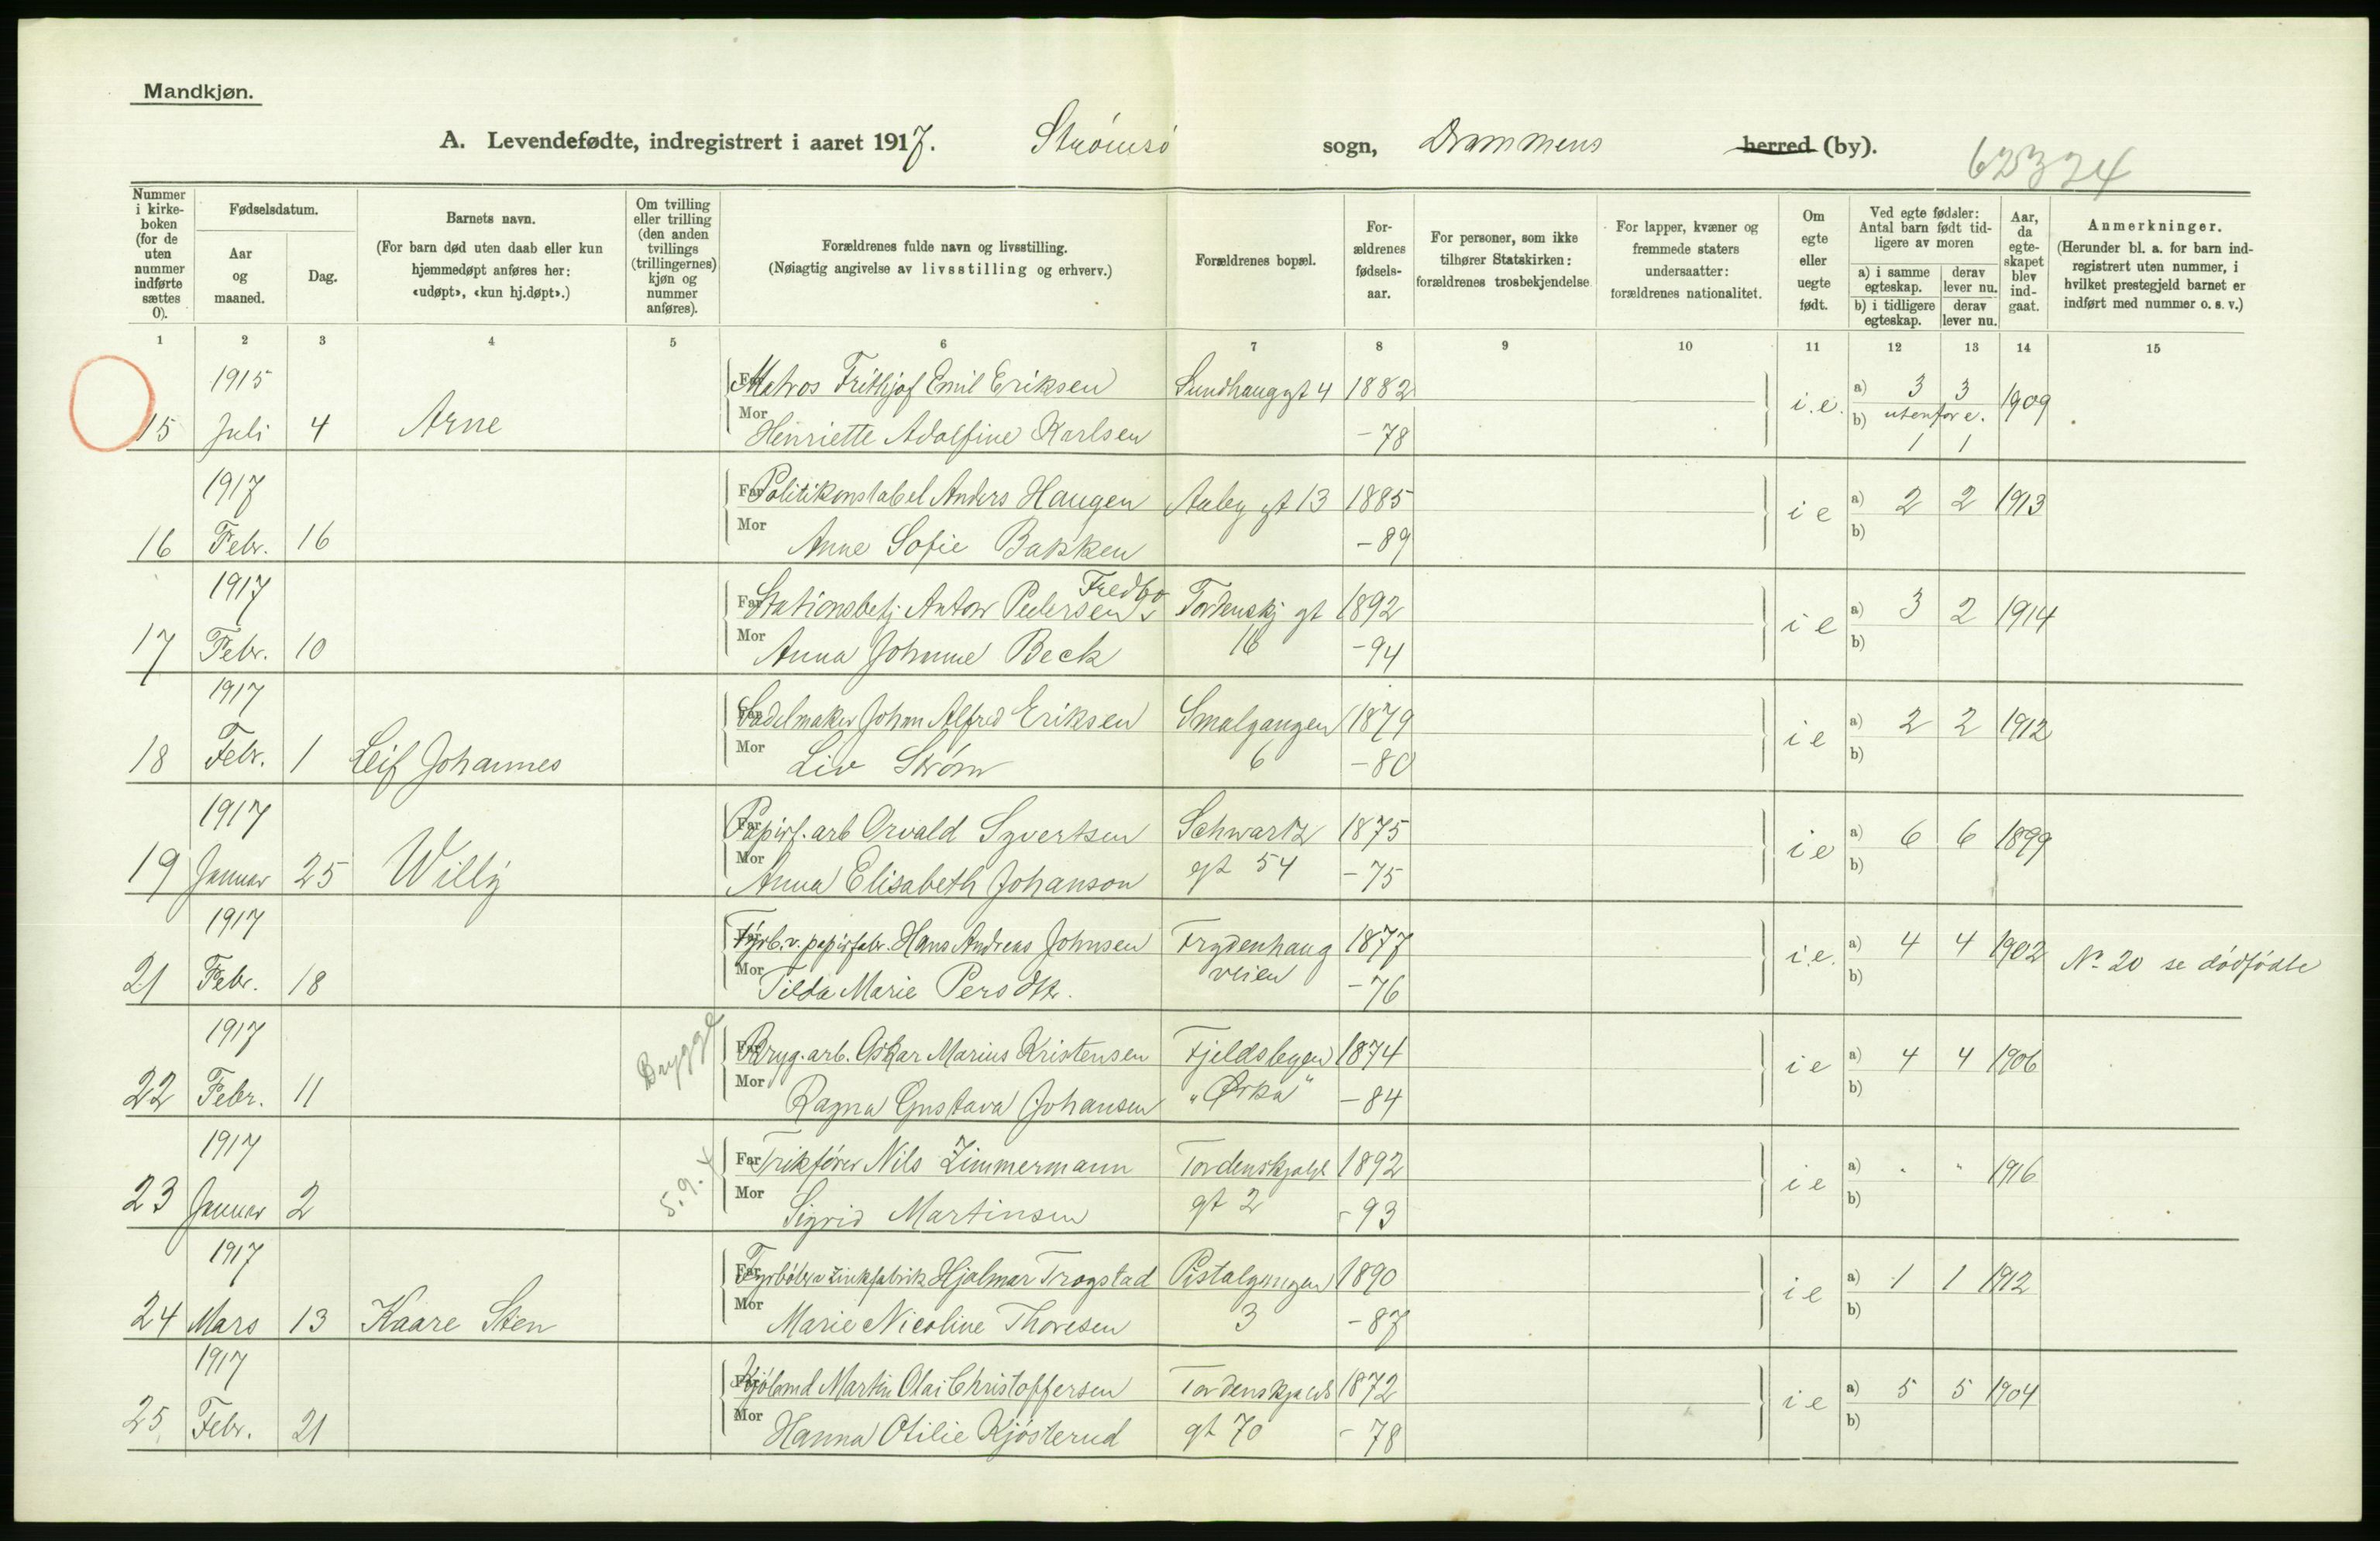 Mandkjøn.
A. Levendefødte, indregistrert i aaret 1917. Strømsø sogn, Drammens herred (by).
62324
Nummer i kirke-boken (for de uten nummer indførte sættes 0).
Fødselsdatum.
Aar og maaned.
Dag.
Barnets navn.
(For barn død uten daab eller kun hjemmedøpt anføres her: «udøpt», «kun hj.døpt».)
Om tvilling eller trilling (den anden tvillings (trillingernes) kjøn og nummer anføres).
Forældrenes fulde navn og livsstilling.
(Nøiagtig angivelse av livsstilling og erhverv.)
Forældrenes bopæl.
For-ældrenes fødsels-aar.
For personer, som ikke tilhører Statskirken: forældrenes trosbekjendelse.
For lapper, kvæner og fremmede staters undersaatter: forældrenes nationalitet.
Om egte eller uegte født.
Ved egte fødsler: Antal barn født tid-ligere av moren
a) i samme egteskap. derav lever nu.
b) i tidligere egteskap. derav lever nu.
Aar, da egte-skapet blev ind-gaat.
Anmerkninger.
(Herunder bl. a. for barn ind-registrert uten nummer, i hvilket prestegjeld barnet er indført med nummer o. s. v.)
1 2 3 4 5 6 7 8 9 10 11 12 13 14 15
1915 Far Matros Frithjof Emil Eriksen Sundhauggt 4 1882 a) 3 3
15 Juli 4 Arne Mor Henriette Adolfine Karlsen -78 i.e. b) utenfor e. 1 1 1909
1917 Far Politikonstabel Anders Haugen Aaby gt 13 1885 a) 2 2 1913
16 Febr. 16 Mor Anne Sofie Bakken -89 i e b)
1917 Far Stationsbetj Anton Pedersen Fredbo Tordenskj gt 1892 a) 3 2 1914
17 Febr. 10 Mor Anna Johnme Beck 16 -94 i e b)
1917 Far Sadelmaker Johan Alfred Eriksen Smalgangen 1879 a) 2 2 1912
18 Febr. 1 Leif Johannes Mor Liv Strøm 6 -80 i e b)
1917 Far Papirf. arb Orvald Syvertsen Schwartz 1875 a) 6 6 1899
19 Januar 25 Willy Mor Anna Elisabeth Johanson gt 54 -75 i e b)
1917 Far Fyrb. v. papirfabr. Hans Andreas Johnsen Frydenhaug 1877 a) 4 4 1902
21 Febr. 18 Mor Tilda Marie Persdtr. veien -76 i.e. b) No 20 se dödfödte
1917 Brygge Far Bryg. arb. Oskar Marius Kristensen Fjeldsbyen 1874 a) 4 4 1906
22 Febr. 11 Mor Ragna Gustava Johansen "Orka" -84 i e b)
1917 Far Trikfører Nils Zimmermann Tordenskjolds 1892 a) " " 1916
23 Januar 2 5.9. Mor Sigrid Martinsen gt 2 -93 i e b)
1917 Far Fyrböter v zinkfabrik Hjalmar Trogstad Pistolgangen 1890 a) 1 1 1912
24 Mars 13 Kaare Sten Mor Marie Nicoline Thoresen 3 -87 i e b)
1917 Far Kjöbmd Martin Olai Christoffersen Tordenskjolds 1872 a) 5 5 1904
25 Febr. 21 Mor Hanna Otilie Kjösterud gt 70 -78 i e b)